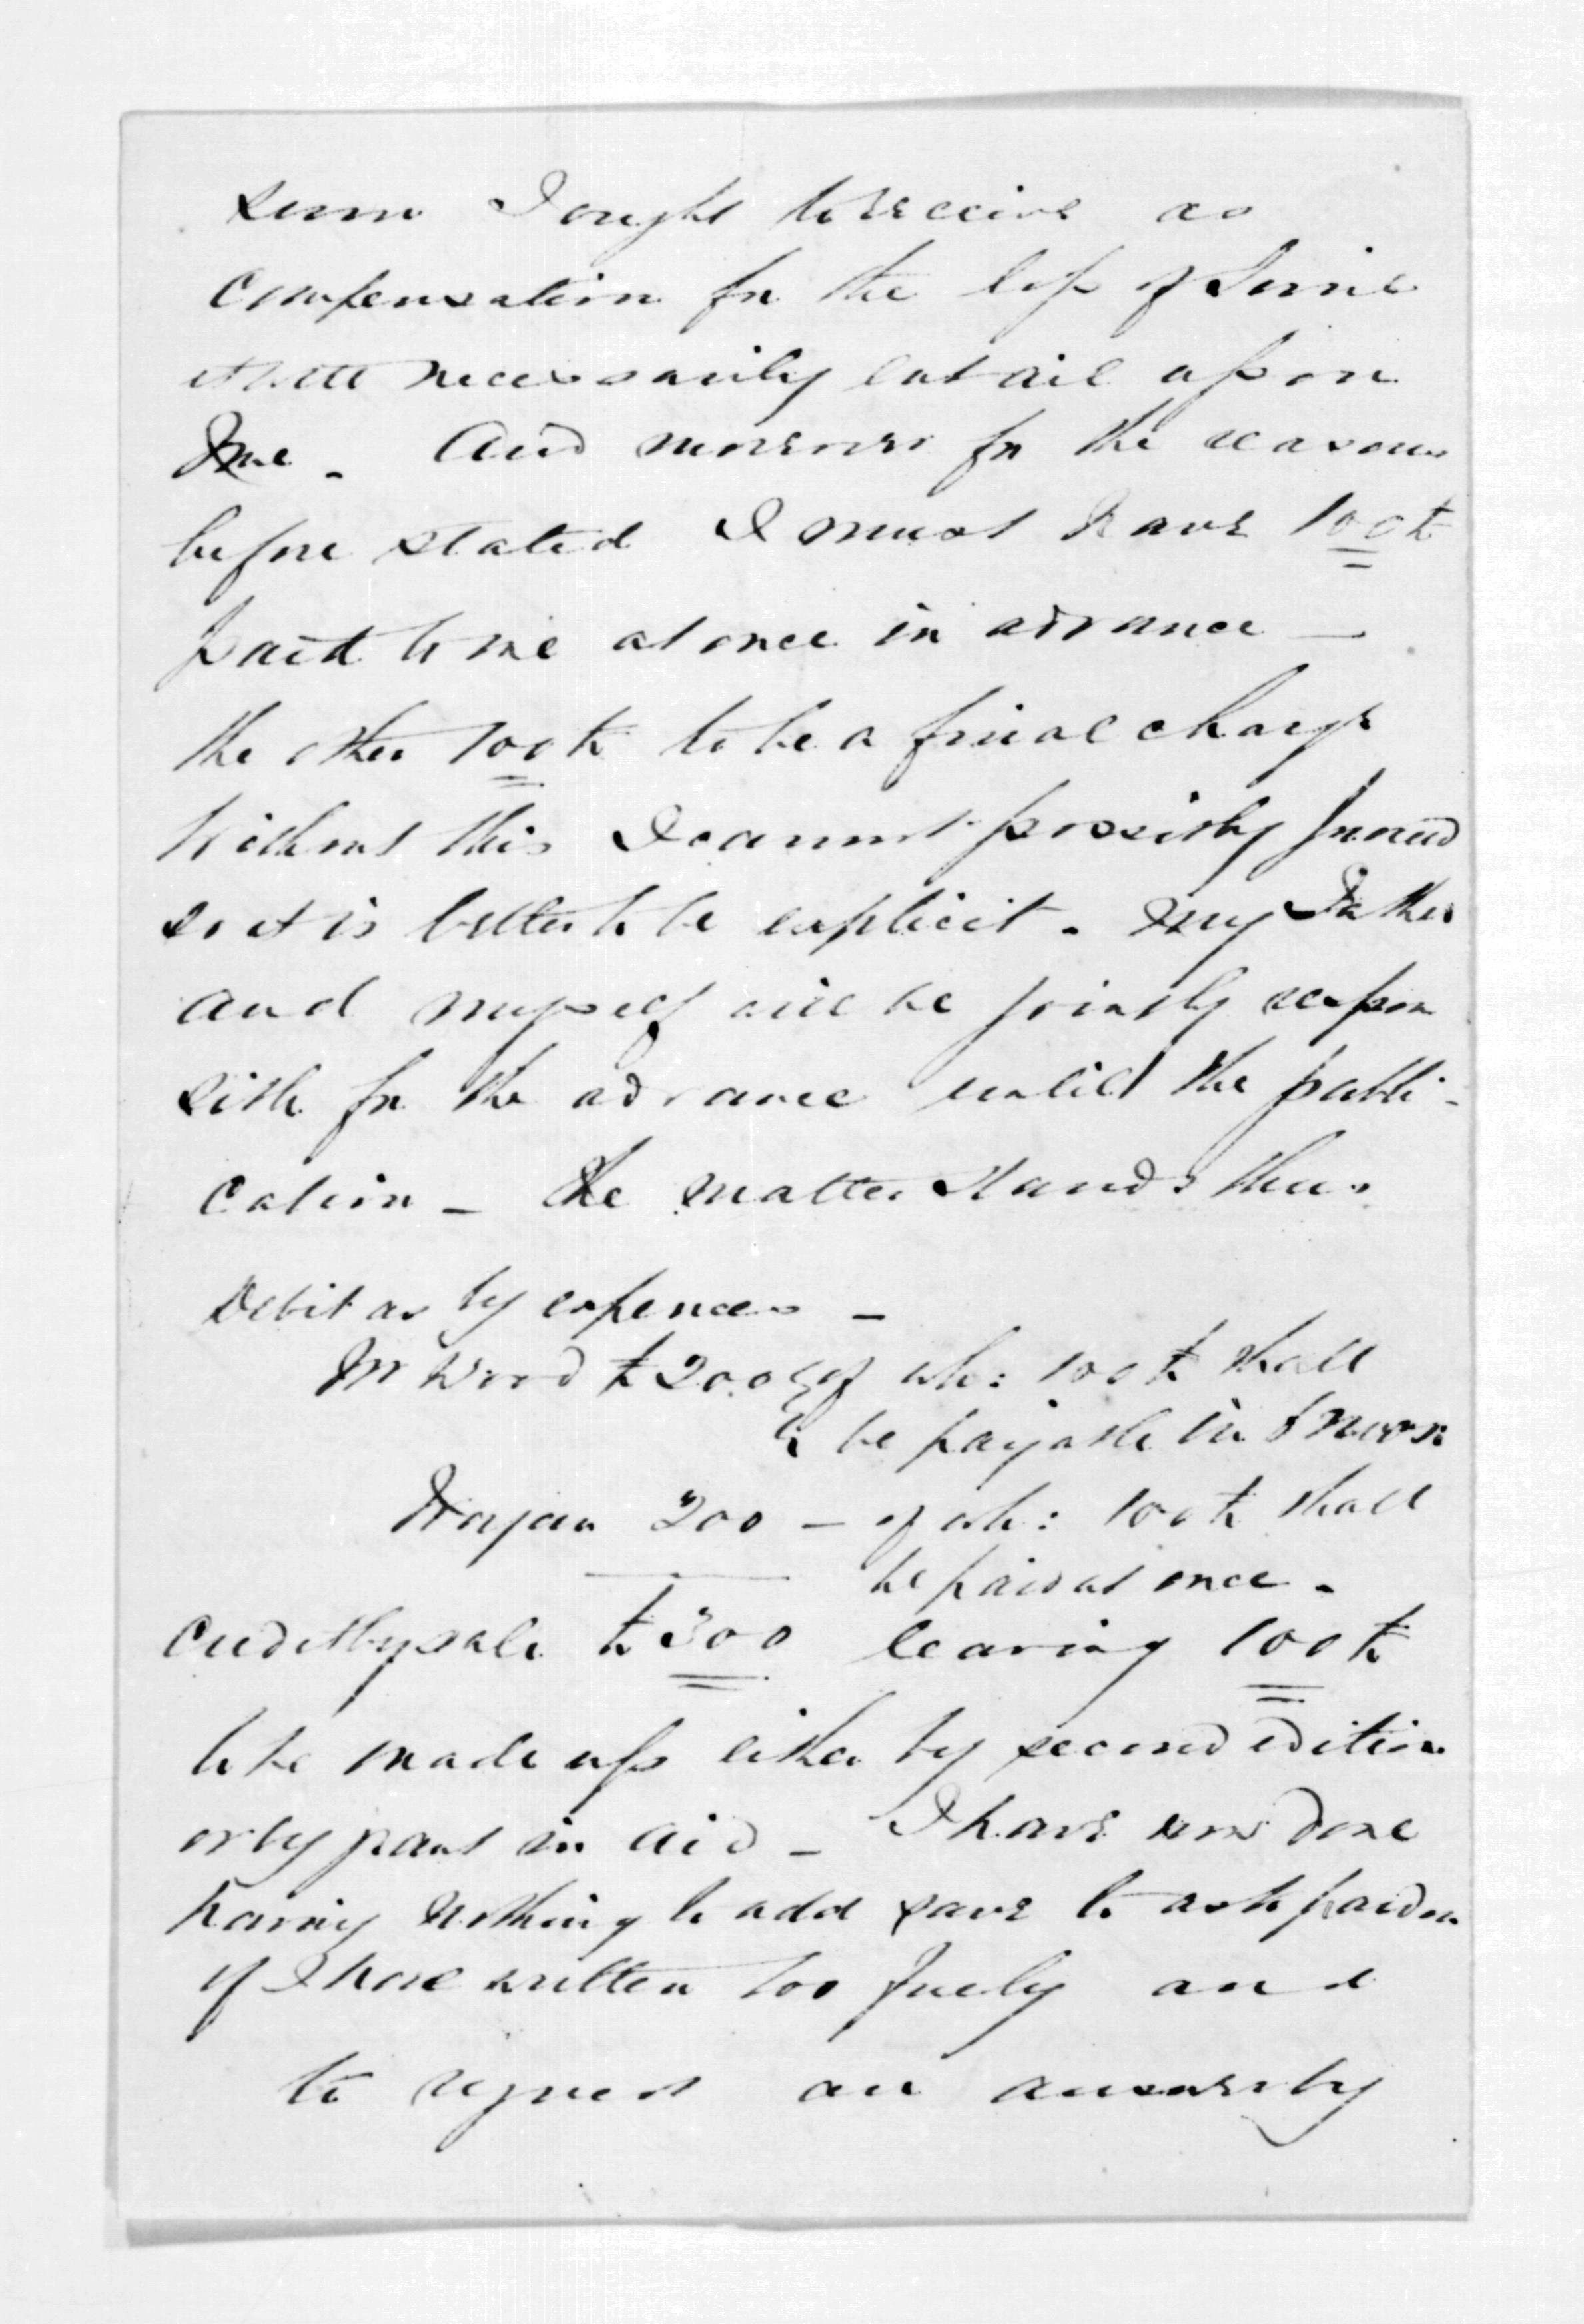 sum I ought to receive as
compensation for the loss of time
it will necessarily entail upon
me. And moreover for the reasons
before stated I must have 100£
paid to me at once in advance —
the other 100£ to be a final charge
Without this I cannot possibly proceed
so it is better to be explicit. My Father
and myself will be jointly respon
sible for the advance until the publi-
cation — the matter stands thus
Debit as by expences —
Mr Wood £200 of wh: 100£ shall
be payable in
200 — of wh: 100£ shall
be paid at once.
Credit by sale £300 leaving 100£
to be made up either by second edition
or by grant in aid — I have now done
having nothing to add save to ask pardon
if I have written too freely and
to request an answer by